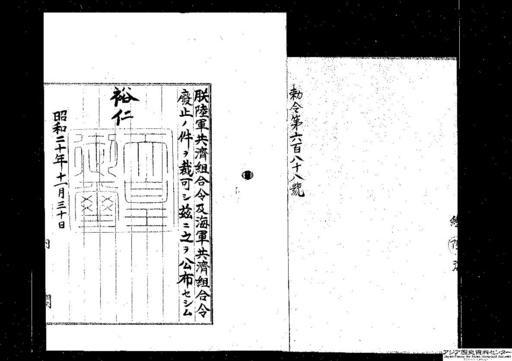 勅令第六百八十八號
朕陸軍共濟組合令及海軍共濟組合令
廢止ノ件ヲ裁可シ茲ニ之ヲ公布セシム
裕仁
昭和二十年十一月三十日
アジア歴史資料センター